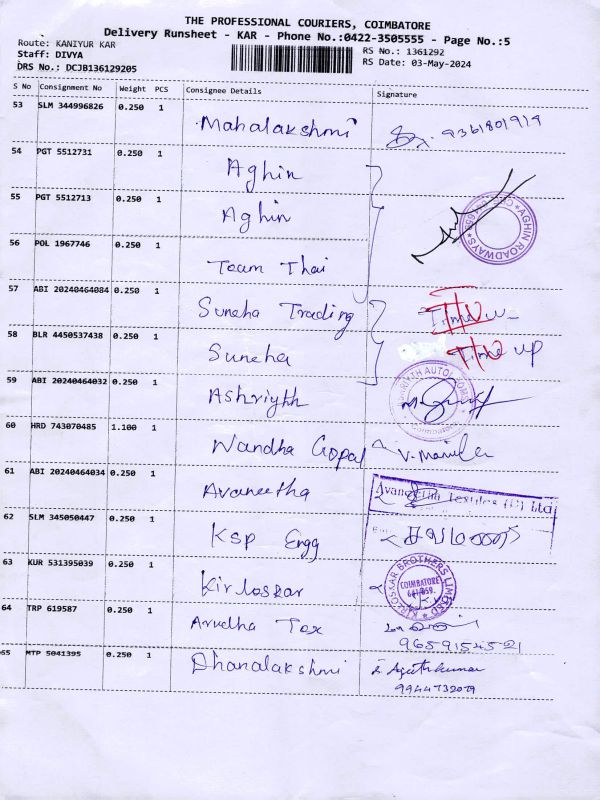 THE PROFESSIONAL COURIERS, COIMBATORE
Delivery Runsheet - KAR - Phone No.:0422-3505555 - Page No.:5
Route: KANIYUR KAR
RS No.: 1361292
Staff: DIVYA
RS Date: 03-May-2024
DRS No.: DCJB136129205
S No Consignment No Weight PCS Consignee Details Signature
53 SLM 344996826 0.250 1 Mahalakshmi 9361801919
54 PGT 5512731 0.250 1 Aghin
55 PGT 5512713 0.250 1 Aghin
AGHIN ROADWAYS
56 POL 1967746 0.250 1 Team Thai
57 ABI 20240464084 0.250 1 Suneha Trading Time u
58 BLR 4450537438 0.250 1 Suneha Time up
59 ABI 20240464032 0.250 1 Ashriyth
60 HRD 743070485 1.100 1 Nandha Gopal V.
61 ABI 20240464034 0.250 1 Avaneetha
Textiles (P) Ltd
62 SLM 345050447 0.250 1 Ksp Engg
63 KUR 531395039 0.250 1 Kirloskar
KIRLOSKAR BROTHERS LIMITED
COIMBATORE
641 659.
64 TRP 619587 0.250 1 Arudha Tex
9659154521
65 MTP 5041395 0.250 1 Dhanalakshmi
9944732079